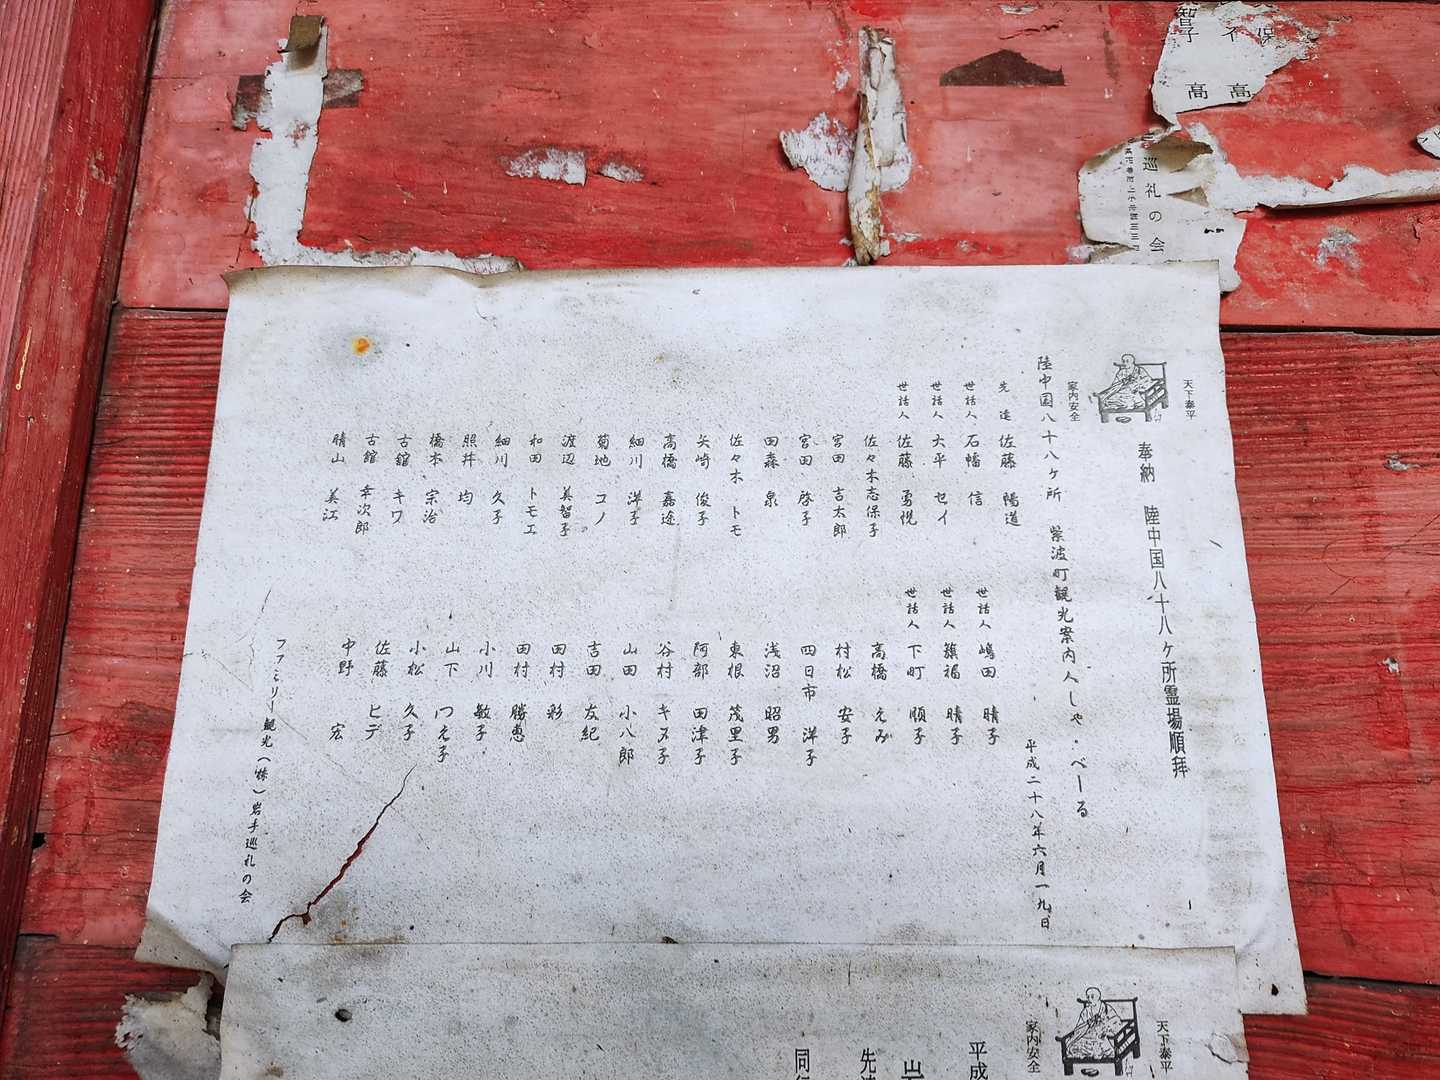 天下泰平
家内安全
奉納 陸中国八十八ケ所霊場順拝
陸中国八十八ケ所 紫波町観光案内人しゃ・べーる
平成二十八年六月一九日
先達 佐藤 陽道
世話人 石幡 信
世話人 大平 セイ
世話人 佐藤 勇悦
佐々木志保子
宮田 吉太郎
宮田 啓子
田森 泉
佐々木 トモ
矢崎 俊子
高橋 嘉途
細川 洋子
菊地 コノ
渡辺 美智子
和田 トモエ
細川 久子
照井 均
橋本 宗治
古舘 キワ
古舘 幸次郎
晴山 美江
世話人 嶋田 晴子
世話人 簗福 晴子
世話人 下町 順子
高橋 えみ
村松 安子
四日市 洋子
浅沼 昭男
東根 茂里子
阿部 田津子
谷村 キヌ子
山田 小八郎
吉田 友紀
田村 彩
田村 勝恵
小川 敏子
山下 つえ子
小松 久子
佐藤 ヒデ
中野 宏
ファミリー観光(株)岩手巡礼の会
智子
イ
保
高
高
巡礼の会
天下泰平
家内安全
平成
山
先達
同行